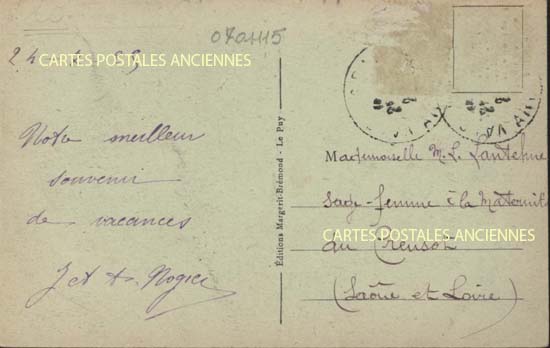 0704115
CARTES POSTALES ANCIENNES
Notre meilleur
souvenir
de vacances
Éditions Margerit-Brémond - Le Puy
Mademoiselle M. L.
sage-femme à la Maternité
CARTES POSTALES ANCIENNES
au Creusot
(Saône et Loire)